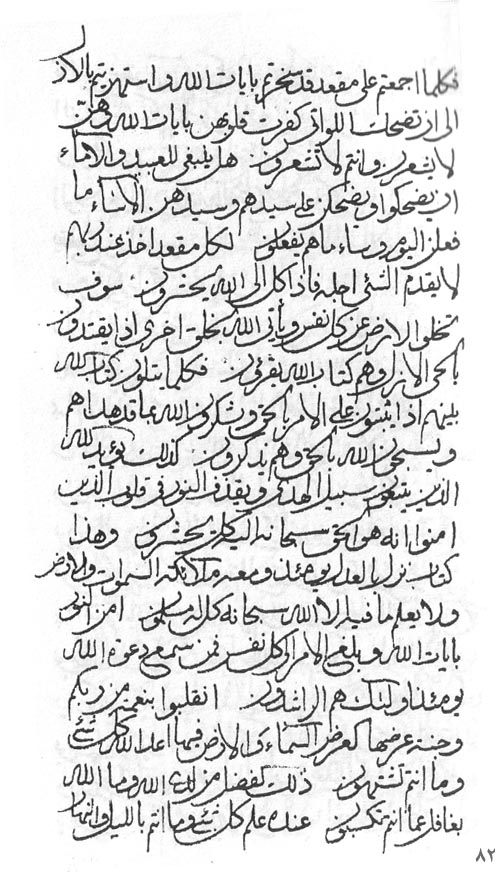 فكلما اجمعتم على مقعد قد سخرتم بايات الله واستهزيتم بالاذ
الى ان تضحك اللواتى كفرت قلوبهن بايات الله وهن
لا يشعرن وانتم لا تشعرون هل ينبغى للعبيد والاماء
ان يضحكوا ويضحكن على سيدهم وسيدهن الا ساء ما
فعلن اليوم وساء ما هم يفعلون لكل مقعد اخذ عند ربهم
لا يقدم الشئى اجله فاذا كل الى الله يحشرون سوف
تخلو الارض عن كل نفس وياتى الله بخلق اخرى اذا يقتدون
بالحق الا نزل وهم كتاب الله يقرئون فكلما يتلون كتاب الله
بينهم اذا يثبتون على الامر بالحق ويشكرون الله بما قد هداهم
ويسبحون الله بالحق وهم يذكرون كذلك يؤيد الله
الذين يتبعون سبيل الهدى ويقذف النور فى قلوب الذين
امنوا انه هو الحق سبحانه اليه كل يحشرون وهذا
كتاب نزل بالعدل يومئذ ومعه ملائكة السموات والارض
ولا يعلم ما فيه الا الله سبحانه كل له مسلمون امن
بايات الله وبلغ الامر الى كل نفس فمن سمع دعوة الله
يومئذ اولئك هم الراشدون انقلبوا بنعمة من ربكم
وجنة عرضها كعرض السماء والارض فيها اعد الله كل شئ
وما انتم تشتهون ذلك لفضل من لدى الله وما الله
بغافل عما انتم تكسبون عنده علم كل شئ وما انتم بالليل والنهار
٨٢